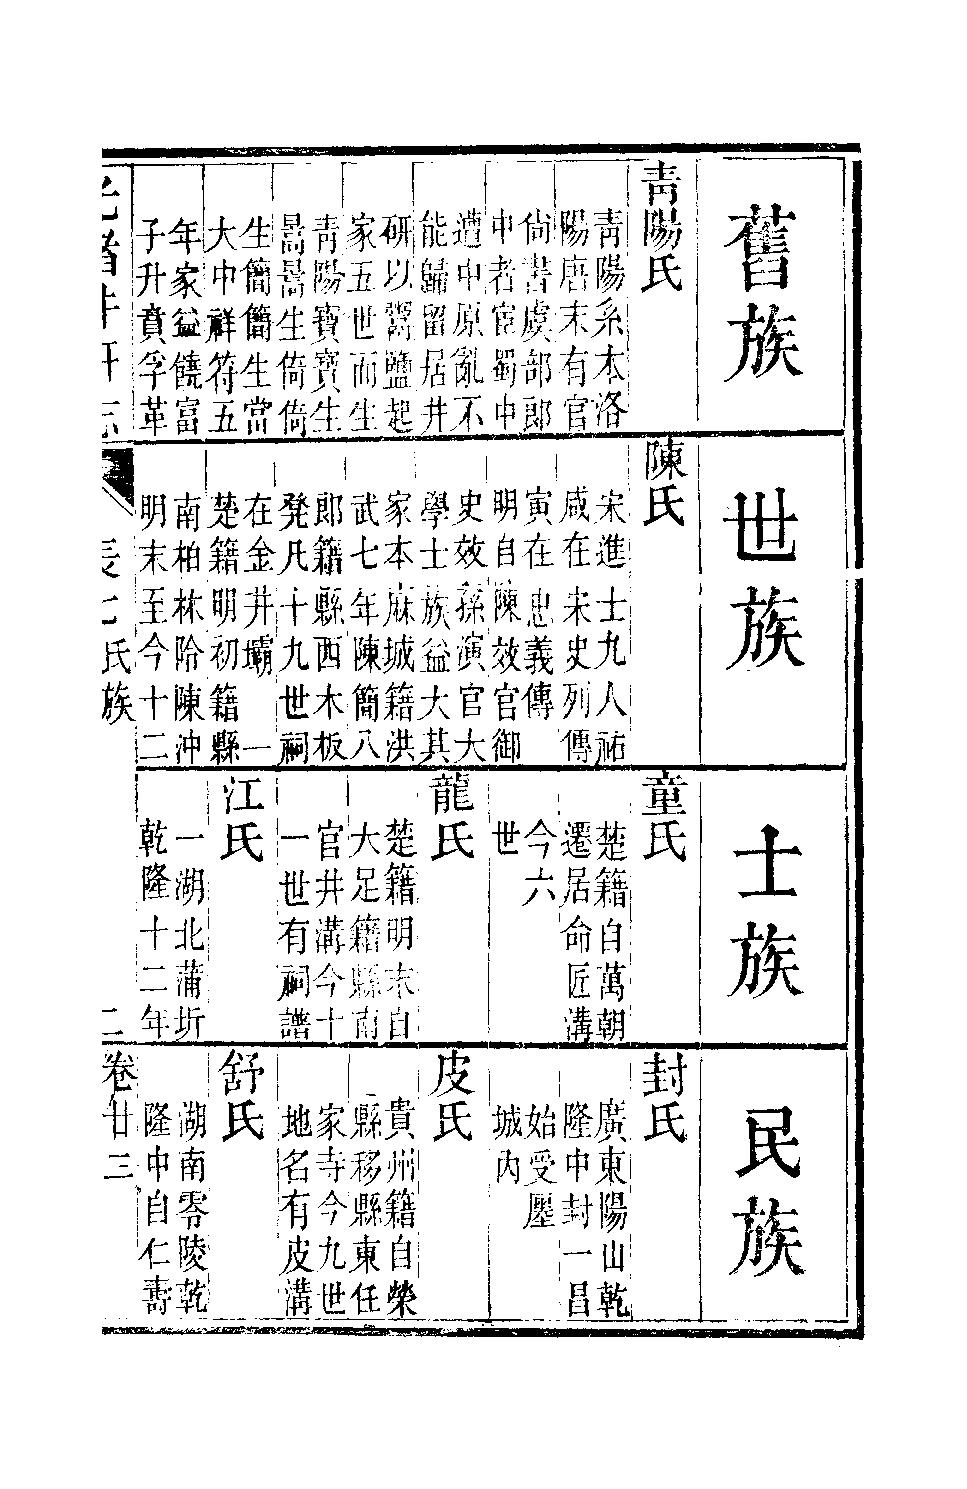 舊族
青陽氏
青陽系本洛
陽唐末有官
尙書虞部郎
中者宦蜀中
遭中原亂不
能歸留居井
研以鬻鹽起
家五世而生
青陽寶寶生
暠暠生倚倚
生簡簡生當
大中祥符五
年家益饒富
子升賁孚革
世族
陳氏
宋進士九人祐
咸在宋史列傳
寅在忠義傳
明自陳效官御
史效孫演官大
學士族益大其
家本麻城籍洪
武七年陳簡八
郎籍縣西木板
凳凡十九世祠
在金井壩 一
楚籍明初籍縣
南柏林陥陳沖
明末至今十二
士族
童氏
楚籍自萬朝
遷居命匠溝
今六
世
龍氏
楚籍明末自
大足籍縣南
官井溝今十
一世有祠譜
江氏
一湖北蒲圻
乾隆十二年
民族
封氏
廣東陽山乾
隆中封一昌
始受廛
城內
皮氏
貴州籍自榮
縣移縣東任
家寺今九世
地名有皮溝
舒氏
湖南零陵乾
隆中自仁壽
光緖井研志
表七氏族
二
卷廿三